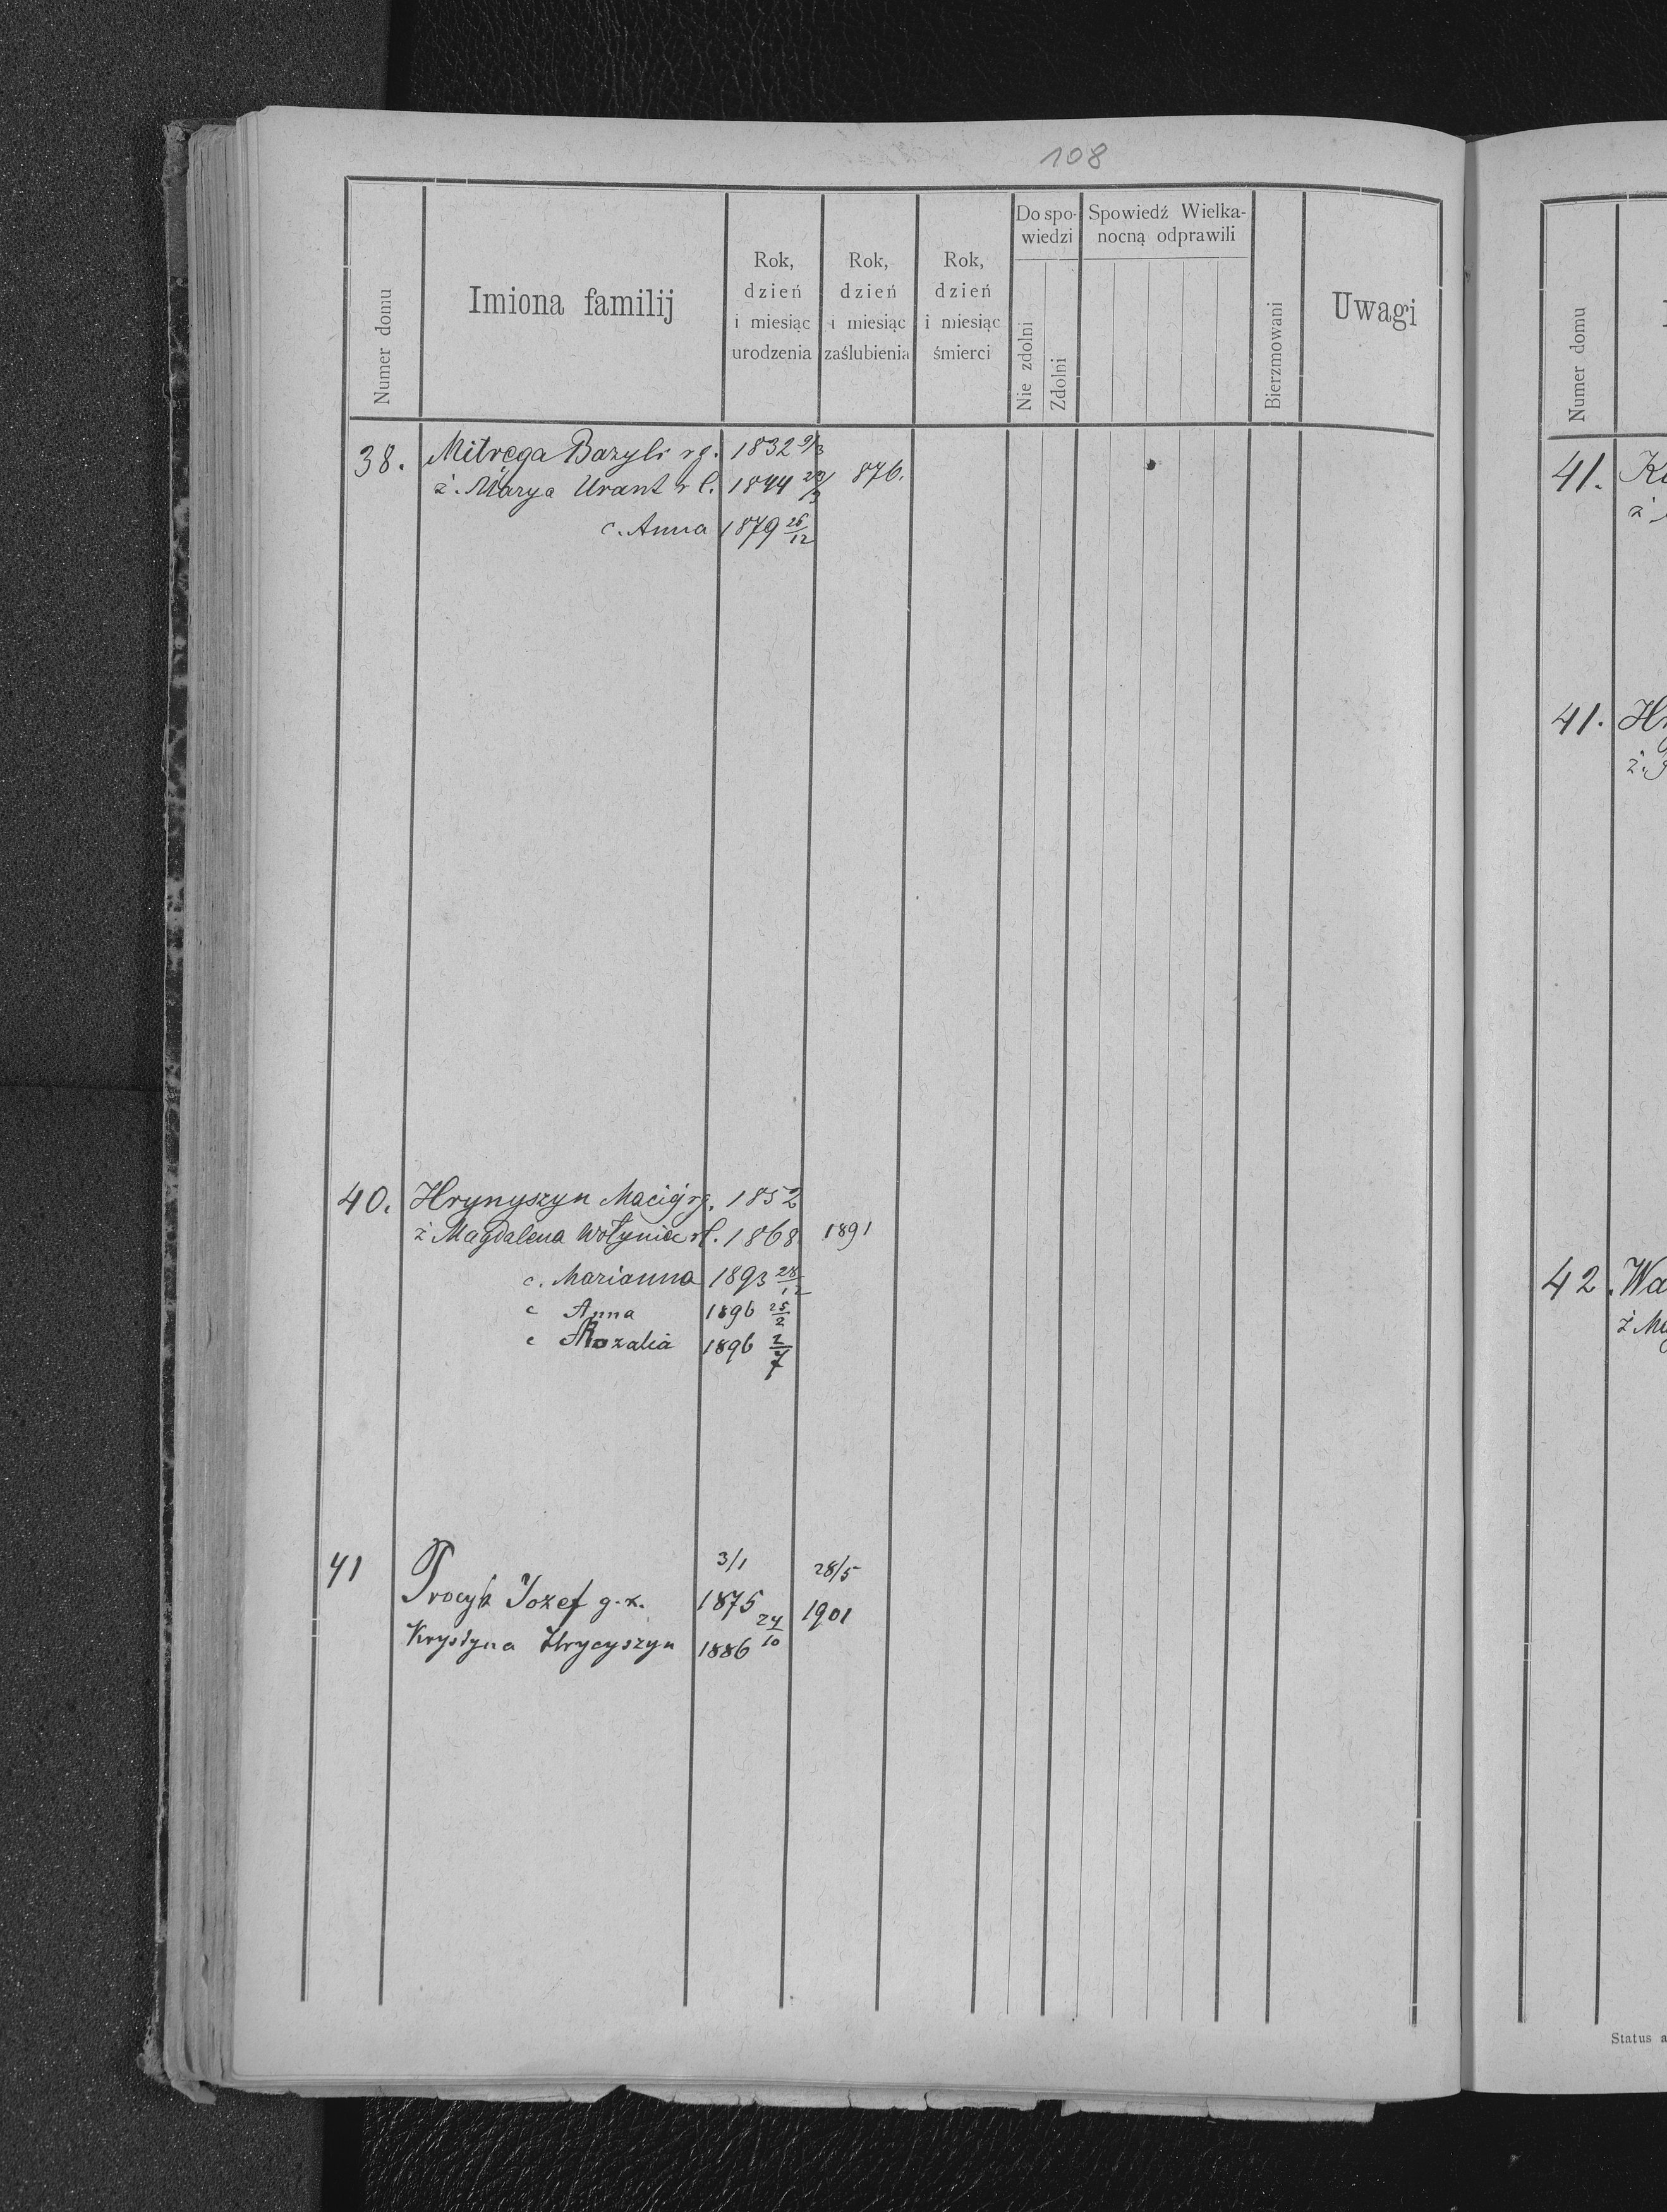 108
Numer domu
Imiona familij
Rok, dzień i miesiąc urodzenia
Rok, dzień i miesiąc zaślubienia
Rok, dzień i miesiąc śmierci
Do spo-
wiedzi
Nie zdolni
Zdolni
Spowiedź Wielka-
nocną odprawili
Bierzmowani
Uwagi
38. Mitręga Bazyli rg. 1832 9/3
ż. Marya Urant rł. 1844 23/3 876.
c. Anna 1879 26/12
40. Hrynyszyn Maciej rg. 1852
ż Magdalena Wołyniec rł. 1868 1891
c. Marianna 1893 28/12
c Anna 1896 25/2
c Rozalia 1896 2/7
41 3/1 28/5
Procyk Jozef g.k. 1875 1901
Krystyna Hrycyszyn 1886 24/10
Numer domu
41. 
ż
41. H
ż.
42. Wa
ż
Status a